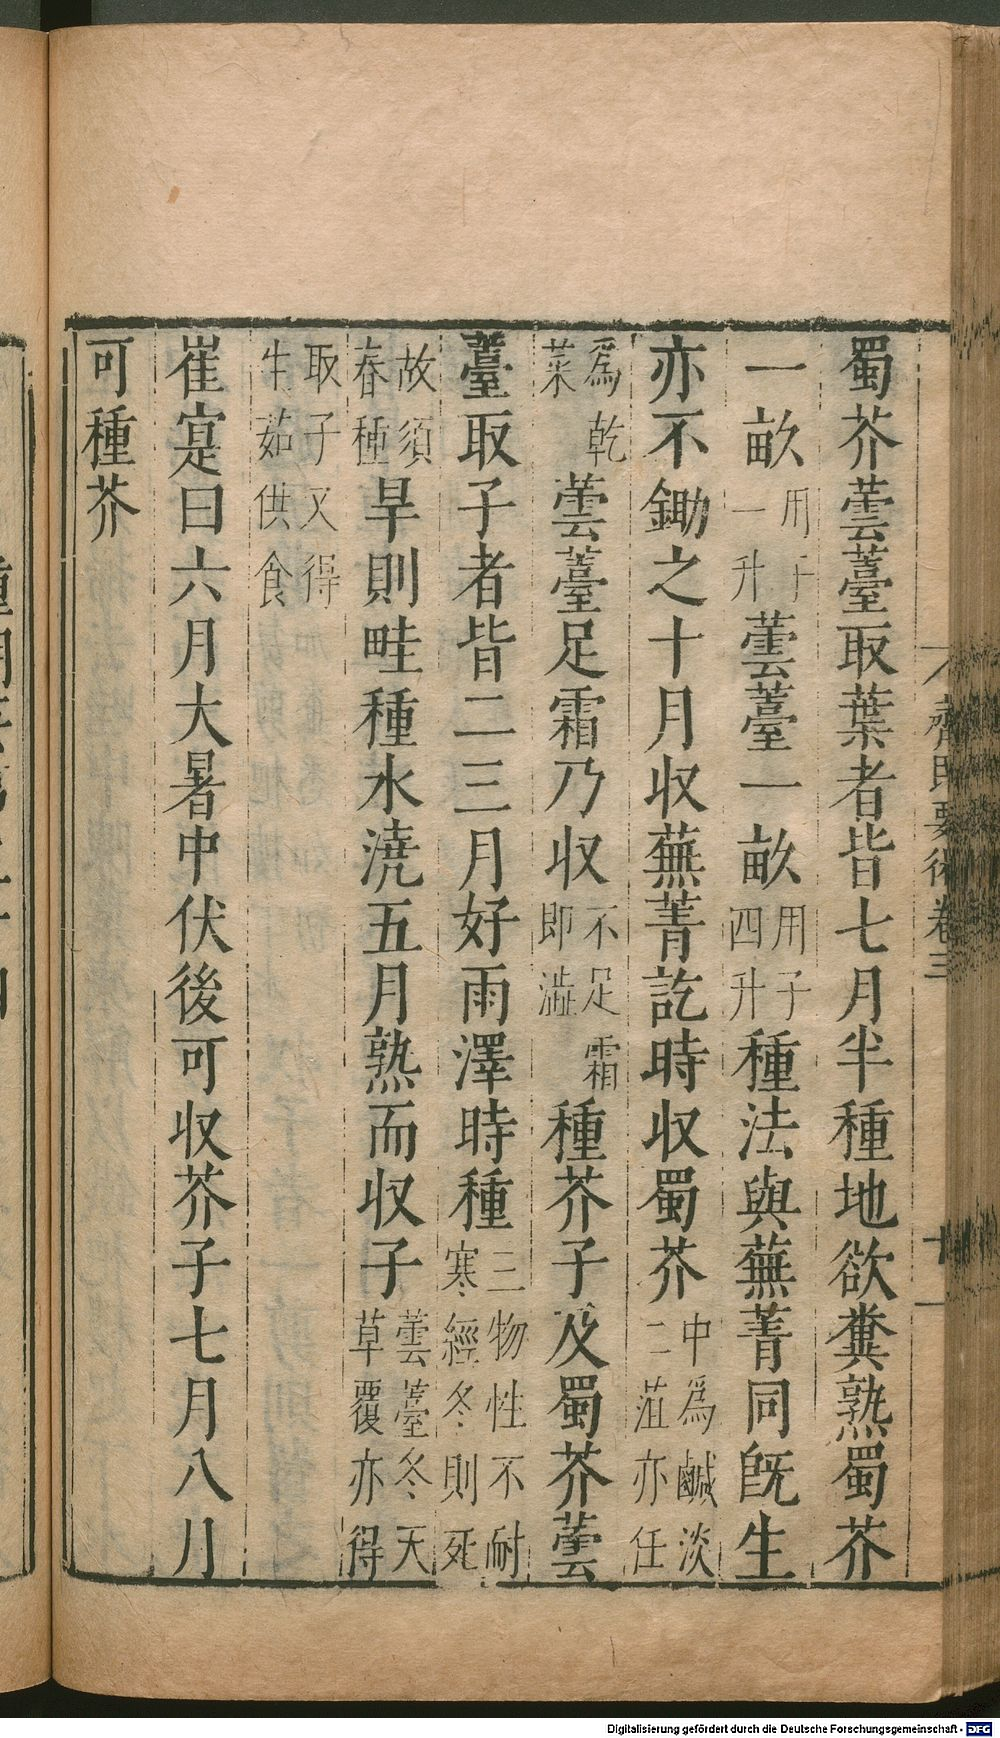 蜀芥蕓薹取葉者皆七月半種地欲糞熟蜀芥
一畝用子一升蕓薹一畝用子四升種法與蕪菁同旣生
亦不鋤之十月收蕪菁訖時收蜀芥中爲鹹淡二菹亦任
爲乾菜蕓薹足霜乃收不足霜即澁種芥子及蜀芥蕓
薹取子者皆二三月好雨澤時種三物性不耐寒經冬則死
故須春種旱則畦種水澆五月熟而收子蕓薹冬天草覆亦得
取子又得生茹供食
崔寔曰六月大暑中伏後可收芥子七月八月
可種芥
齊民要術卷三
Digitalisierung gefördert durch die Deutsche Forschungsgemeinschaft - DFG